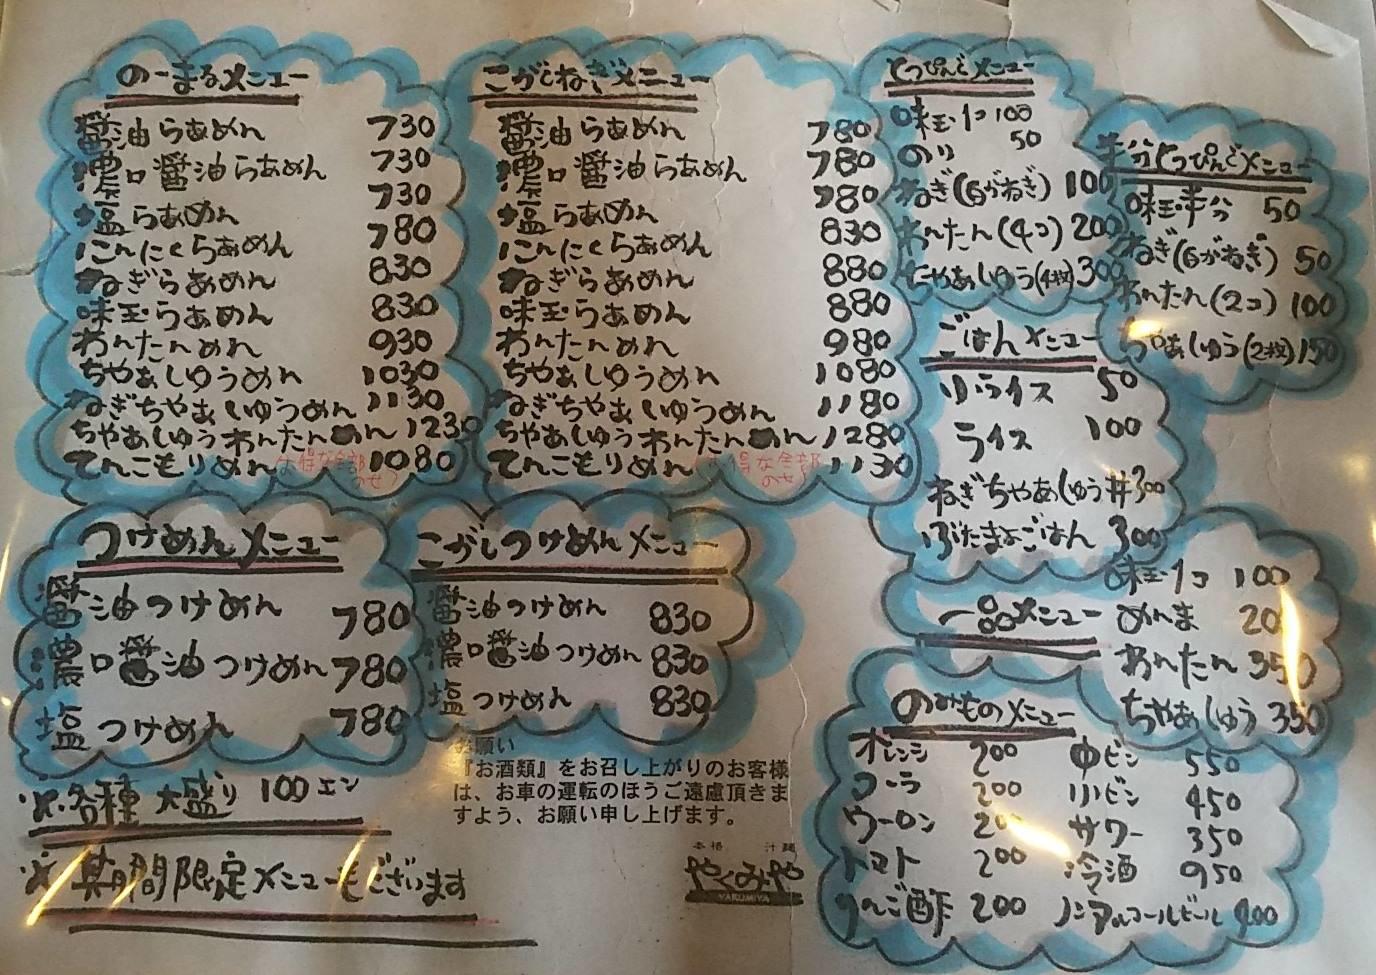 のーまるメニュー
醤油らあめん 730
濃口醤油らあめん 730
塩らあめん 730
にんにくらあめん 780
ねぎらあめん 830
味玉らあめん 830
わんたんめん 930
ちやあしゆうめん 1030
ねぎちやあしゆうめん 1130
ちやあしゆうわんたんめん 1230
てんこもりめん お得な全部のせ♪ 1080
こがしねぎメニュー
醤油らあめん 780
濃口醤油らあめん 780
塩らあめん 780
にんにくらあめん 830
ねぎらあめん 880
味玉らあめん 880
わんたんめん 980
ちやあしゆうめん 1080
ねぎちやあしゆうめん 1180
ちやあしゆうわんたんめん 1280
てんこもりめん お得な全部のせ♪ 1130
とっぴんぐメニュー
味玉1コ 100
のり 50
ねぎ(白がねぎ) 100
わんたん(4コ) 200
ちやあしゆう(4枚) 300
半分とっぴんぐメニュー
味玉半分 50
ねぎ(白がねぎ) 50
わんたん(2コ) 100
ちやあしゆう(2枚) 150
ごはんメニュー
小ライス 50
ライス 100
ねぎちやあしゆう丼 300
ぶたまよごはん 300
つけめんメニュー
醤油つけめん 780
濃口醤油つけめん 780
塩つけめん 780
こがしつけめんメニュー
醤油つけめん 830
濃口醤油つけめん 830
塩つけめん 830
一品メニュー
味玉1コ 100
めんま
わんたん 350
ちやあしゆう 350
のみものメニュー
オレンジ 200
コーラ 200
ウーロン 200
トマト 200
りんご酢 200
中ビン 550
小ビン 450
サワー 350
冷酒 950
ノンアルコールビール 400
※各種大盛り 100エン
※期間限定メニューもございます
お願い
『お酒類』をお召し上がりのお客様
は、お車の運転のほうご遠慮頂きま
すよう、お願い申し上げます。
本格 汁麺
やくみや
YAKUMIYA